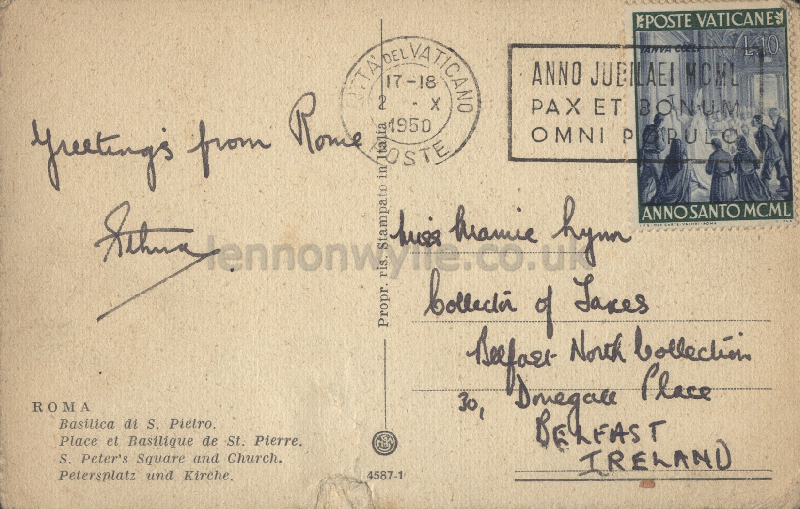 POSTE VATICANE
IANVA COELI
L.10
ANNO SANTO MCML
CITTA' DEL VATICANO
17-18
2 - X
1950
POSTE
ANNO JUBILAEI MCML
PAX ET BONUM
OMNI POPULO
Greetings from Rome
lennonwylie.co.uk
Miss Mamie Lynn
Collector of Taxes
Belfast North Collection
30, Donegall Place
BELFAST
IRELAND
Propr. ris. Stampato in Italia
ROMA
Basilica di S. Pietro.
Place et Basilique de St. Pierre.
S. Peter's Square and Church.
Petersplatz und Kirche.
4587-1